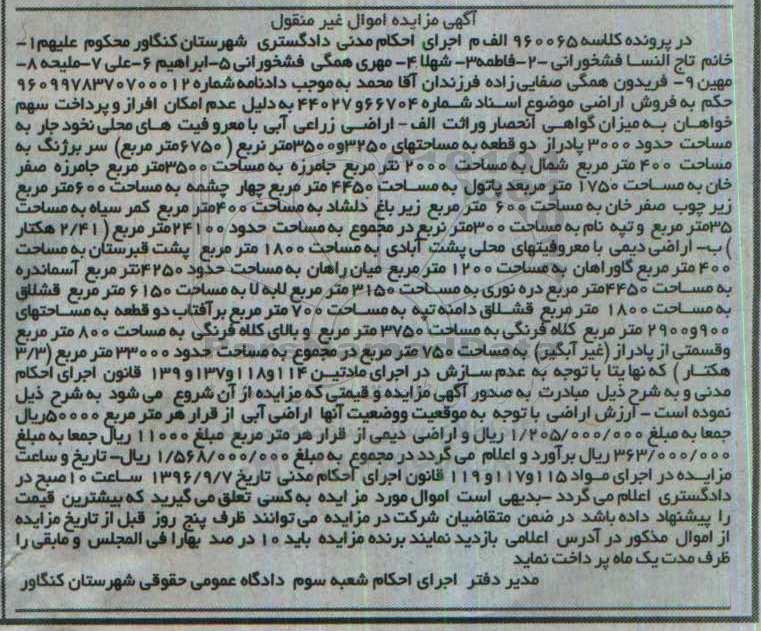 آگهی مزایده اموال غیر منقول
در پرونده کلاسه ۹۶۰۰۶۵ الف م اجرای احکام مدنی دادگستری شهرستان کنگاور محکوم علیهم۱-
خانم تاج النسا فشخورانی -۲-فاطمه۳- شهلا ۴- مهری همگی فشخورانی ۵-ابراهیم ۶-علی ۷-ملیحه ۸-
مهین ۹- فریدون همگی صفایی زاده فرزندان آقا محمد به موجب دادنامه شماره ۹۶۰۹۹۷۸۳۷۰۷۰۰۰۱۲
حکم به فروش اراضی موضوع اسناد شماره ۶۶۷۰۴و ۴۴۰۲۷ به دلیل عدم امکان افراز و پرداخت سهم
خواهان به میزان گواهی انحصار وراثت الف - اراضی زراعی آبی با معرو فیت های محلی نخود جار به
مساحت حدود ۳۰۰۰ پادراز دو قطعه به مساحتهای ۳۲۵۰و۳۵۰۰متر نربع ( ۶۷۵۰متر مربع) سر برژنگ به
مساحت ۴۰۰ متر مربع شمال به مساحت ۲۰۰۰ نتر مربع جامرزه به مساحت ۳۵۰۰متر مربع جامرزه صفر
خان به مساحت ۱۷۵۰ متر مربعد پاتول به مساحت ۴۴۵۰ متر مربع چهار چشمه به مساحت ۶۰۰متر مربع
زیر چوب صفر خان به مساحت ۶۰۰ متر مربع زیر باغ دلشاد به مساحت ۴۰۰متر مربع کمر سیاه به مساحت
۳۵متر مربع و تپه نام به مساحت ۳۰۰متر نربع در مجموع به مساحت حدود ۲۴۱۰۰متر مربع ( ۲/۴۱ هکتار
) ب- اراضی دیمی با معروفیتهای محلی پشت آبادی به مساحت ۱۸۰۰ متر مربع پشت قبرستان به مساحت
۴۰۰ متر مربع گاوراهان به مساحت ۱۲۰۰ متر مربع میان راهان به مساحت حدود ۴۲۵۰نتر مربع آسماندره
به مساحت ۴۴۵۰متر مربع دره نوری به مساحت ۳۱۵۰ متر مربع لابه لا به مساحت ۶۱۵۰ متر مربع قشلاق
به مساحت ۱۸۰۰ متر مربع قشلاق دامنه تپه به مساحت ۷۰۰ متر مربع برآفتاب دو قطعه به مساحتهای
۹۰۰و۲۹۰۰ متر مربع کلاه فرنگی به مساحت ۳۷۵۰ متر مربع و بالای کلاه فرنگی به مساحت ۸۰۰ متر مربع
وقسمتی از پادراز (غیر آبگیر) به مساحت ۷۵۰ متر مربع در مجموع به مساحت حدود ۳۳۰۰۰ متر مربع (۳/۳
هکتار ) که نهایتا با توجه به عدم سازش در اجرای مادتین ۱۱۴و۱۱۸و۱۳۷و ۱۳۹ قانون اجرای احکام
مدنی و به شرح ذیل مبادرت به صدور آگهی مزایده و قیمتی که مزایده از آن شروع می شود به شرح ذیل
نموده است - ارزش اراضی با توجه به موقعیت ووضعیت آنها اراضی آبی از قرار هر متر مربع ۵۰۰۰۰ریال
جمعا به مبلغ ۱/۲۰۵/۰۰۰/۰۰۰ ریال و اراضی دیمی از قرار هر متر مربع مبلغ ۱۱۰۰۰ ریال جمعا به مبلغ
۳۶۳/۰۰۰/۰۰۰ ریال برآورد و اعلام می گردد در مجموع به مبلغ ۱/۵۶۸/۰۰۰/۰۰۰ ریال- تاریخ و ساعت
مزایده در اجرای مواد ۱۱۵و۱۱۷و ۱۱۹ قانون اجرای احکام مدنی تاریخ ۱۳۹۶/۹/۷ ساعت ۱۰صبح در
دادگستری اعلام می گردد -بدیهی است اموال مورد مز ایده به کسی تعلق می گیرید که بیشترین قیمت
را پیشنهاد داده باشد در ضمن متقاضیان شرکت در مزایده می توانند ظرف پنج روز قبل از تاریخ مزایده
از اموال مذکور در آدرس اعلامی بازدید نمایند برنده مزایده باید ۱۰ در صد بهارا فی المجلس و مابقی را
ظرف مدت یک ماه پر داخت نماید
مدیر دفتر اجرای احکام شعبه سوم دادگاه عمومی حقوقی شهرستان کنگاور